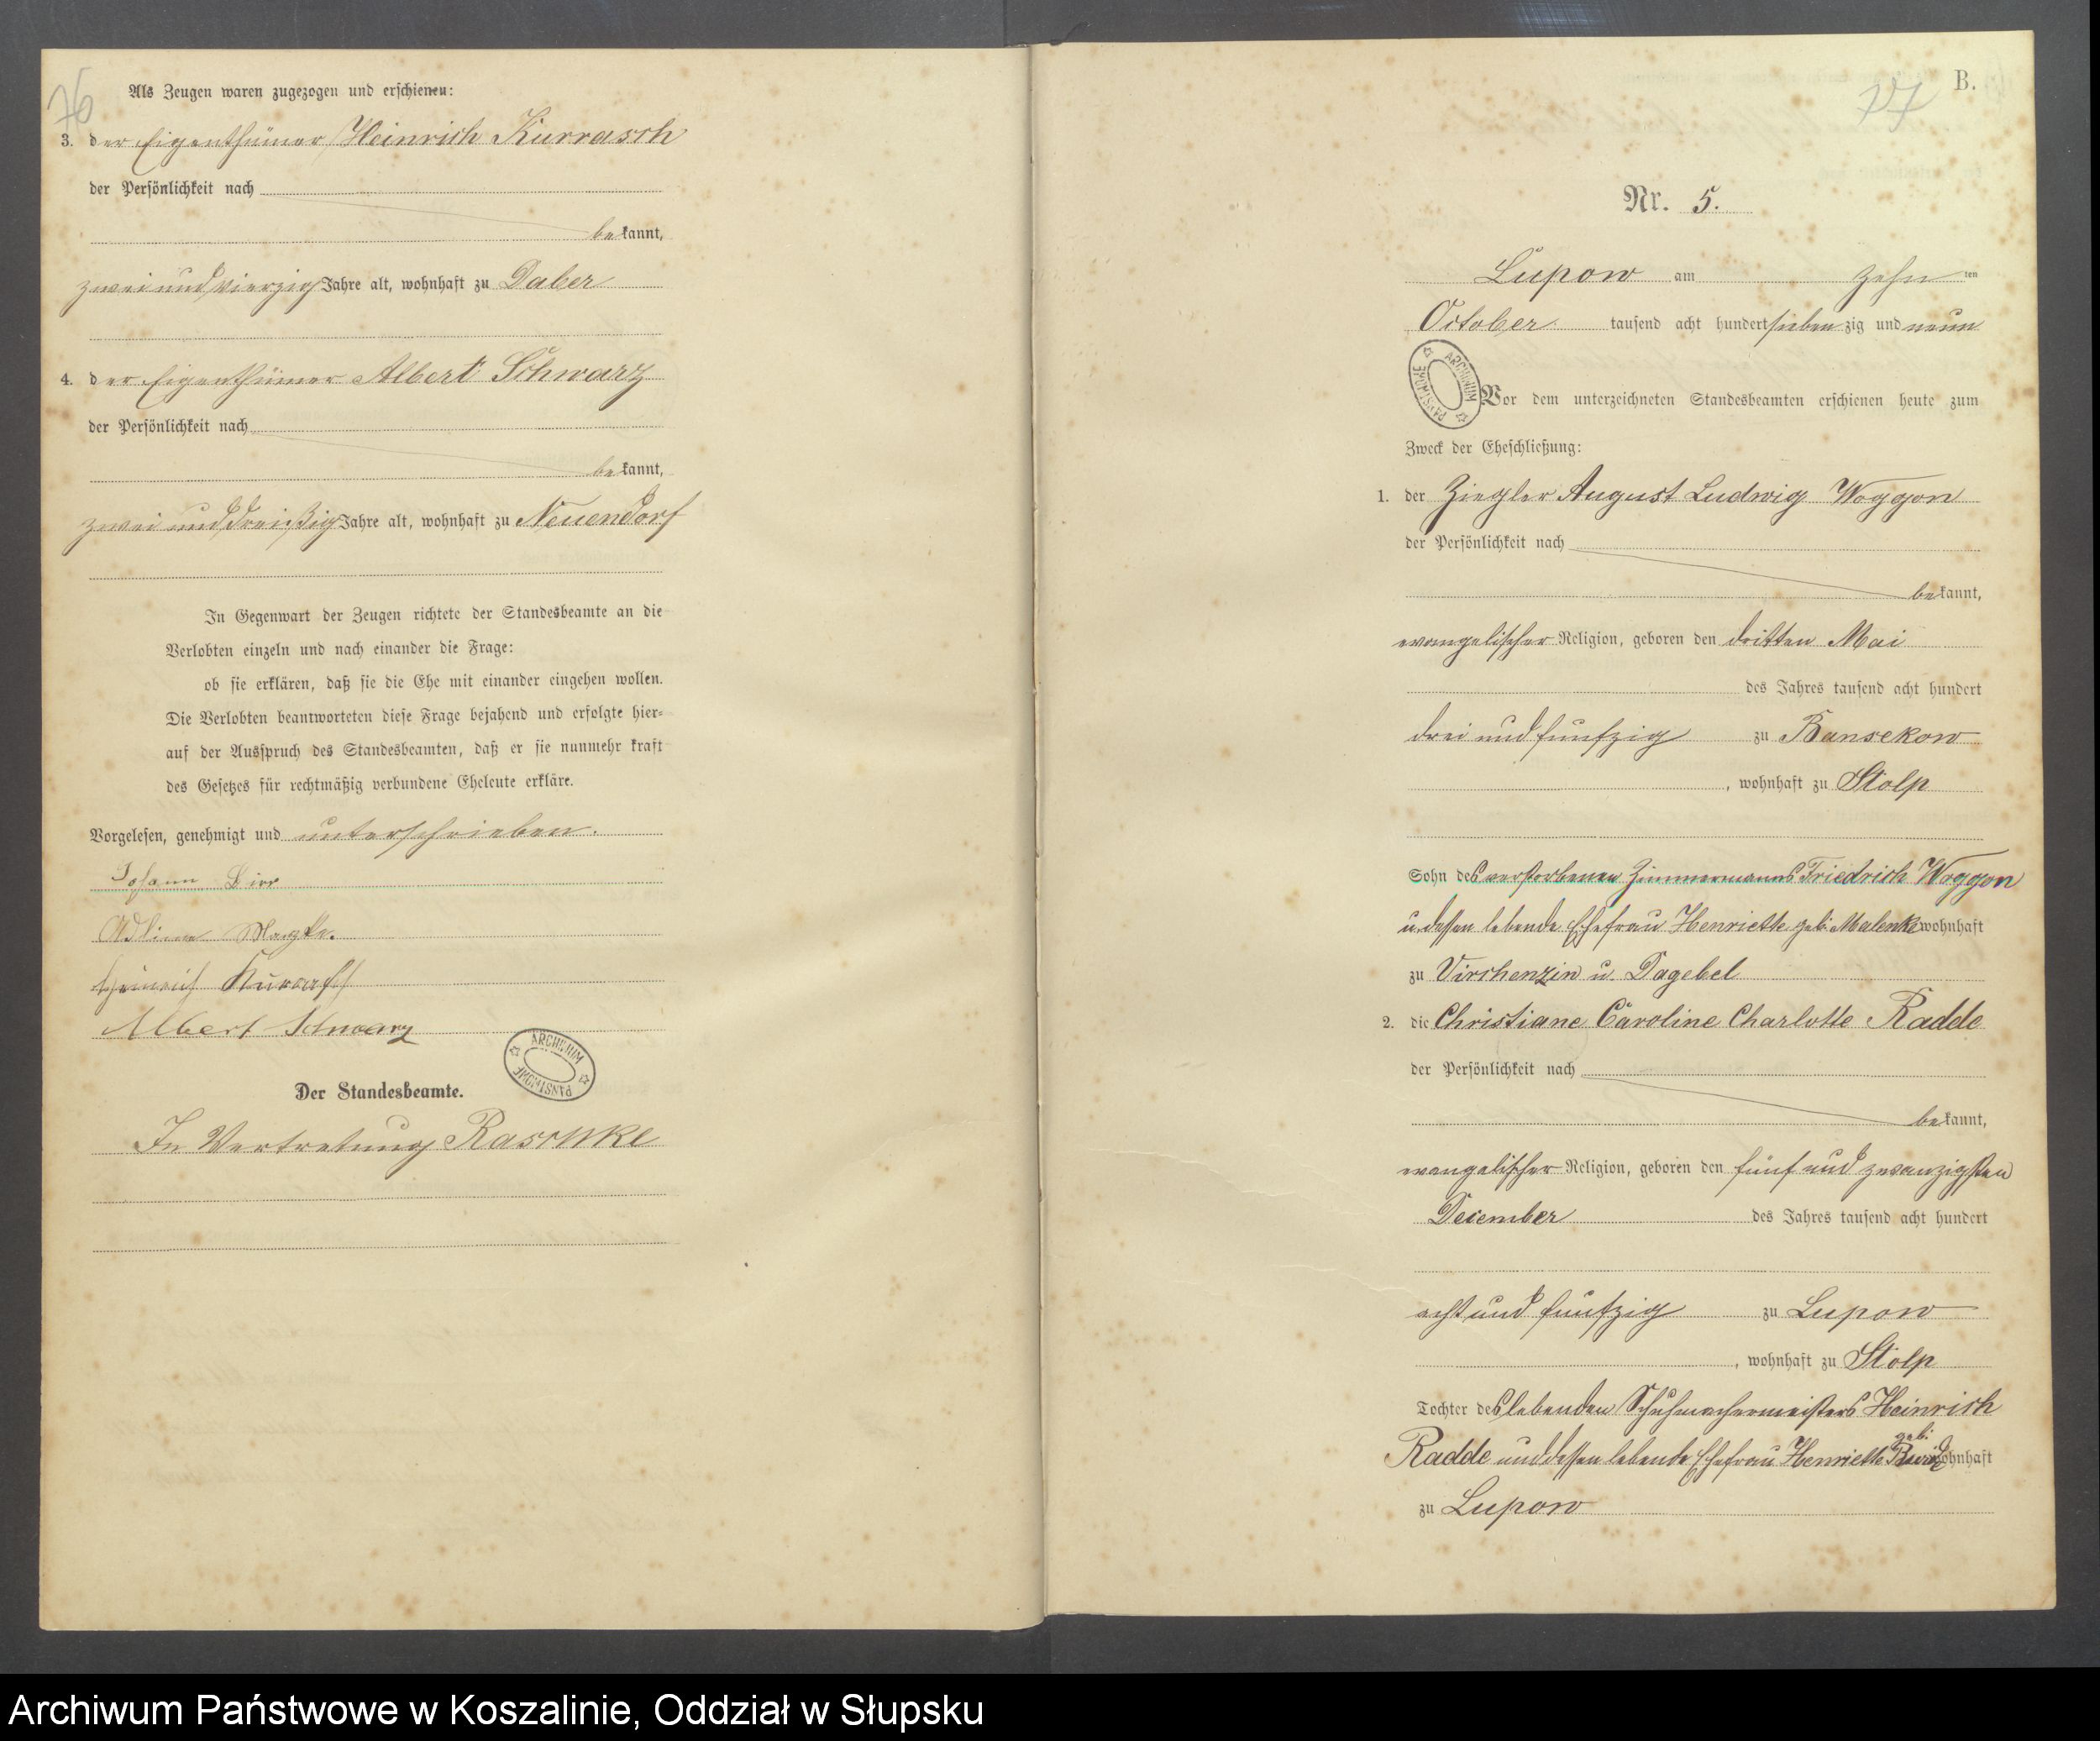 76
Als Zeugen waren zugezogen und erschienen:
3. der Eigenthümer Heinrich Kurrasch
der Persönlichkeit nach
bekannt,
zwei und vierzig Jahre alt, wohnhaft zu Daber
4. der Eigenthümer Albert Schwarz
der Persönlichkeit nach
bekannt,
zwei und dreißig Jahre alt, wohnhaft zu Neuendorf
In Gegenwart der Zeugen richtete der Standesbeamte an die
Verlobten einzeln und nach einander die Frage:
ob sie erklären, daß sie die Ehe mit einander eingehen wollen.
Die Verlobten beantworteten diese Frage bejahend und erfolgte hier-
auf der Ausspruch des Standesbeamten, daß er sie nunmehr kraft
des Gesetzes für rechtmäßig verbundene Eheleute erkläre.
Vorgelesen, genehmigt und unterschrieben.
Johann
Heinrich Kurrasch
Albert Schwarz
ARCHIWUM PAŃSTWOWE
Der Standesbeamte.
In Vertretung Raschke
77
B.
Nr. 5.
Lupow am zehn ten
October tausend acht hundert sieben zig und neun
ARCHIWUM PAŃSTWOWE
Vor dem unterzeichneten Standesbeamten erschienen heute zum
Zweck der Eheschließung:
1. der Ziegler August Ludwig Woggon
der Persönlichkeit nach
bekannt,
evangelischer Religion, geboren den dritten Mai
des Jahres tausend acht hundert
drei und funfzig zu Bansekow
, wohnhaft zu Stolp
Sohn des verstorbenen Zimmermanns Friedrich Woggon
u. dessen lebende Ehefrau Henriette geb. Malenke wohnhaft
zu Virchenzin u. Dagebel
2. die Christiane Caroline Charlotte Radde
der Persönlichkeit nach
bekannt,
evangelischer Religion, geboren den fünf und zwanzigsten
December des Jahres tausend acht hundert
acht und funfzig zu Lupow
, wohnhaft zu Stolp
Tochter des lebenden Schuhmachermeisters Heinrich
Radde und dessen lebende Ehefrau Henriette geb. wohnhaft
zu Lupow
Archiwum Państwowe w Koszalinie, Oddział w Słupsku